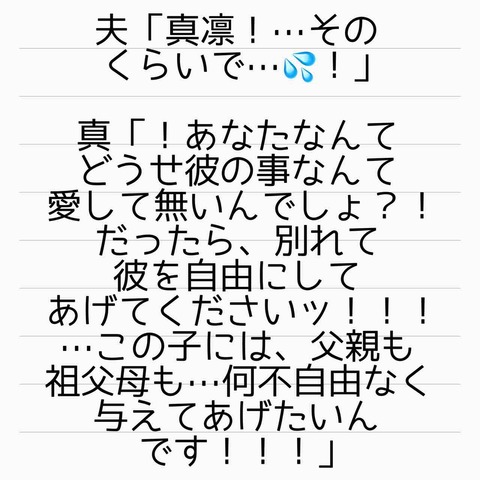 夫「真凛！…その
くらいで…💦！」
真「！あなたなんて
どうせ彼の事なんて
愛して無いんでしょ？！
だったら、別れて
彼を自由にして
あげてくださいッ！！！
…この子には、父親も
祖父母も…何不自由なく
与えてあげたいん
です！！！」